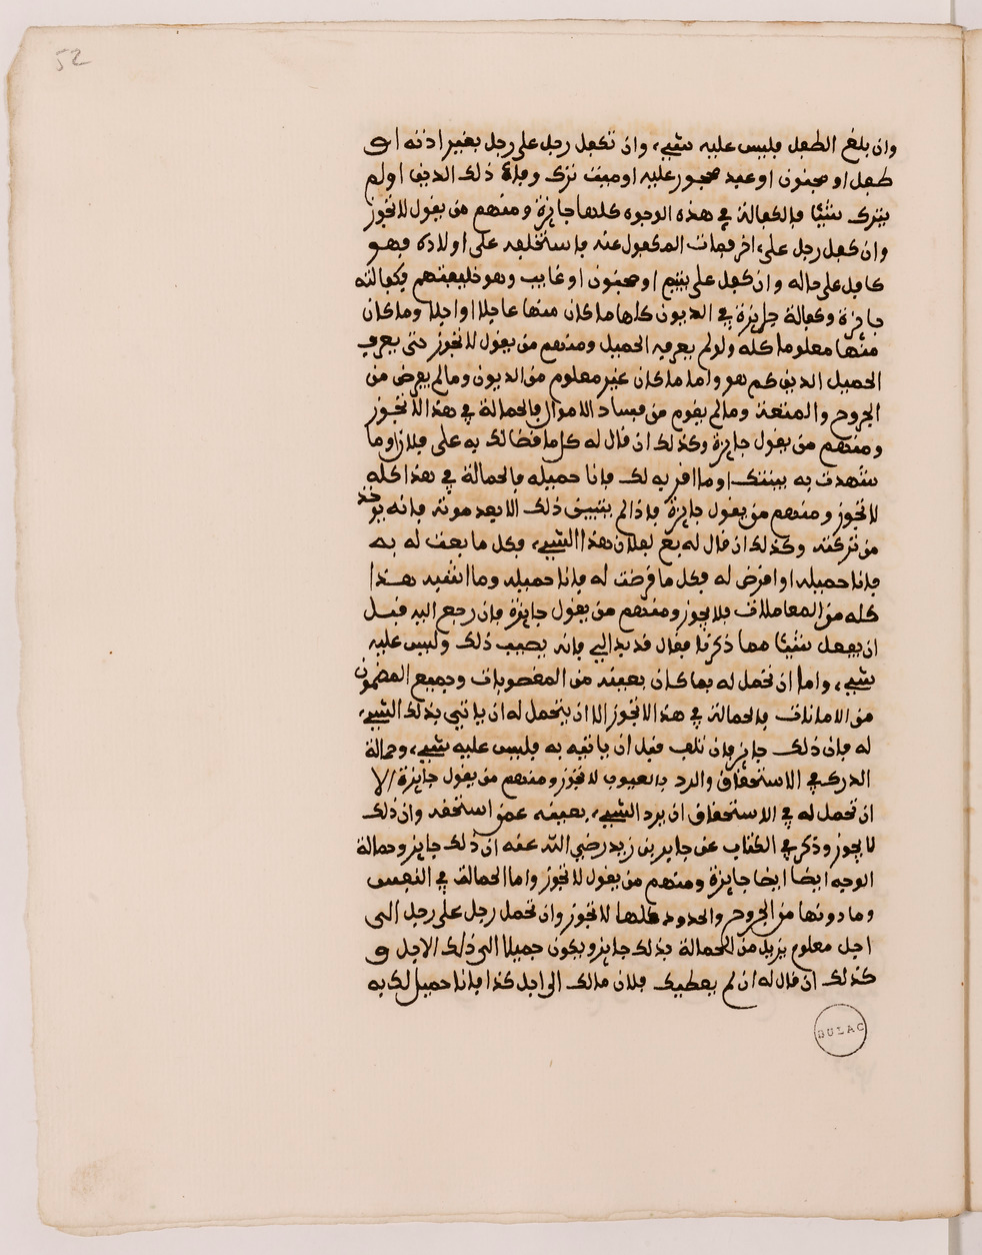 52
وان بلغ الطفل فليس عليه شيء، وان تكفل رجل على رجل بغير اذنه او
طفل او مجنون او عبد محجور عليه او ميت ترك وفاء ذلك الدين او لم
يترك شيئا فالكفالة في هذه الوجوه كلها جايزة ومنهم من يقول لا تجوز
وان كفل رجل على اخر فمات المكفول عنه فاستخلف على اولاده فهو
كافل على حاله وان كفل على يتيم او مجنون او غايب وهو خليفتهم فكفالته
جايزة وكفالة جايزة في الديون كلها ما كان منها عاجلا او اجلا وما كان
منها معلوما كله ولو لم يعرف الحميل ومنهم من يقول لا تجوز حتى يعرف
الحميل الدين كم هو واما ما كان غير معلوم من الديون وما لم يفرض من
الجروح والمتعة وما لم يقوم من فساد الاموال فالحمالة في هذا لا تجوز
ومنهم من يقول جايزة وكذلك ان قال له كل ما قضا لك به على فلان او ما
شهدت به بينتك او ما اقر به لك فانا حميله فالحمالة في هذا كله
لا تجوز ومنهم من يقول جايزة فاذا لم يتبين ذلك الا بعد موته فانه يوخذ
من تركته وكذلك ان قال له بع لفلان هذا الشيء، فكل ما بعت له به
فانا حميله او اقرض له فكل ما قرضت له فانا حميله وما اشبه هذا
كله من المعاملات فلا يجوز ومنهم من يقول جايزة فان رجع اليه قبل
ان يفعل شيئا مما ذكرنا فقال قد بدا لي فانه يصيب ذلك وليس عليه
شيء، واما ان تحمل له بما كان بعينه من المغصوبات وجميع المضمون
من الامانات فالحمالة في هذا لا تجوز الا ان يتحمل له ان ياتي بذلك الشيء،
له فان ذلك جايز فان تلف قبل ان ياتيه به فليس عليه شيء، وحمالة
الدرك في الاستحقاق والرد بالعيوب لا تجوز ومنهم من يقول جايزة الا
ان تحمل له في الاستحقاق ان يرد الشيء، بعينه عمن استحقه وان ذلك
لا يجوز وذكر في الكتاب عن جابر بن زيد رضي الله عنه ان ذلك جايز وحمالة
الوجه ايضا ايضا جايزة ومنهم من يقول لا تجوز واما الحمالة في النفس
وما دونها من الجروح والحدود كلها لا تجوز وان تحمل رجل على رجل الى
اجل معلوم يزيد من الحمالة بذلك جايز ويكون حميلا الى ذلك الاجل و
كذلك ان قال له ان لم يعطيك فلان مالك الى اجل كذا فانا حميل لك به
BULAC